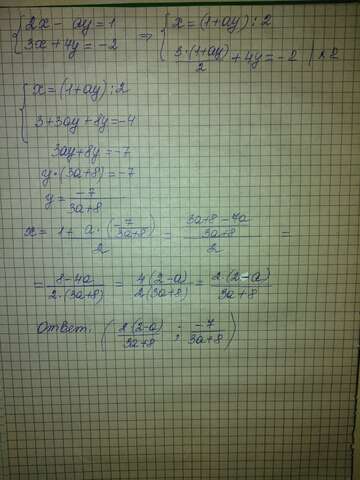 { 2x - ay = 1 => { x = (1+ay) : 2
{ 3x + 4y = -2 { 3·(1+ay)/2 + 4y = -2 | ·2
{ x = (1+ay) : 2
{ 3+3ay+8y=-4
3ay+8y=-7
y·(3a+8)=-7
y = -7/(3a+8)
x = (1+ a·(-7/(3a+8)))/2 = ((3a+8-7a)/(3a+8))/2 =
= (8-4a)/(2·(3a+8)) = 4(2-a)/(2(3a+8)) = 2(2-a)/(3a+8)
Ответ: (2(2-a)/(3a+8) ; -7/(3a+8))